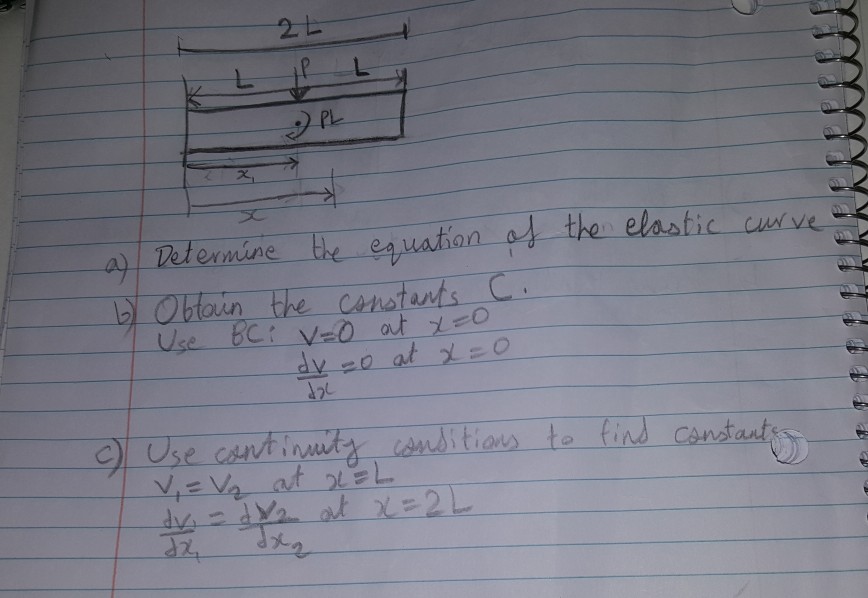 2L
L P L
PL
x₁
x
a) Determine the equation of the elastic curve
b) Obtain the constants C.
Use BC: v=0 at x=0
dv/dx =0 at x=0
c) Use continuity conditions to find constants
v₁=v₂ at x=L
dv₁/dx₁ = dv₂/dx₂ at x=2L